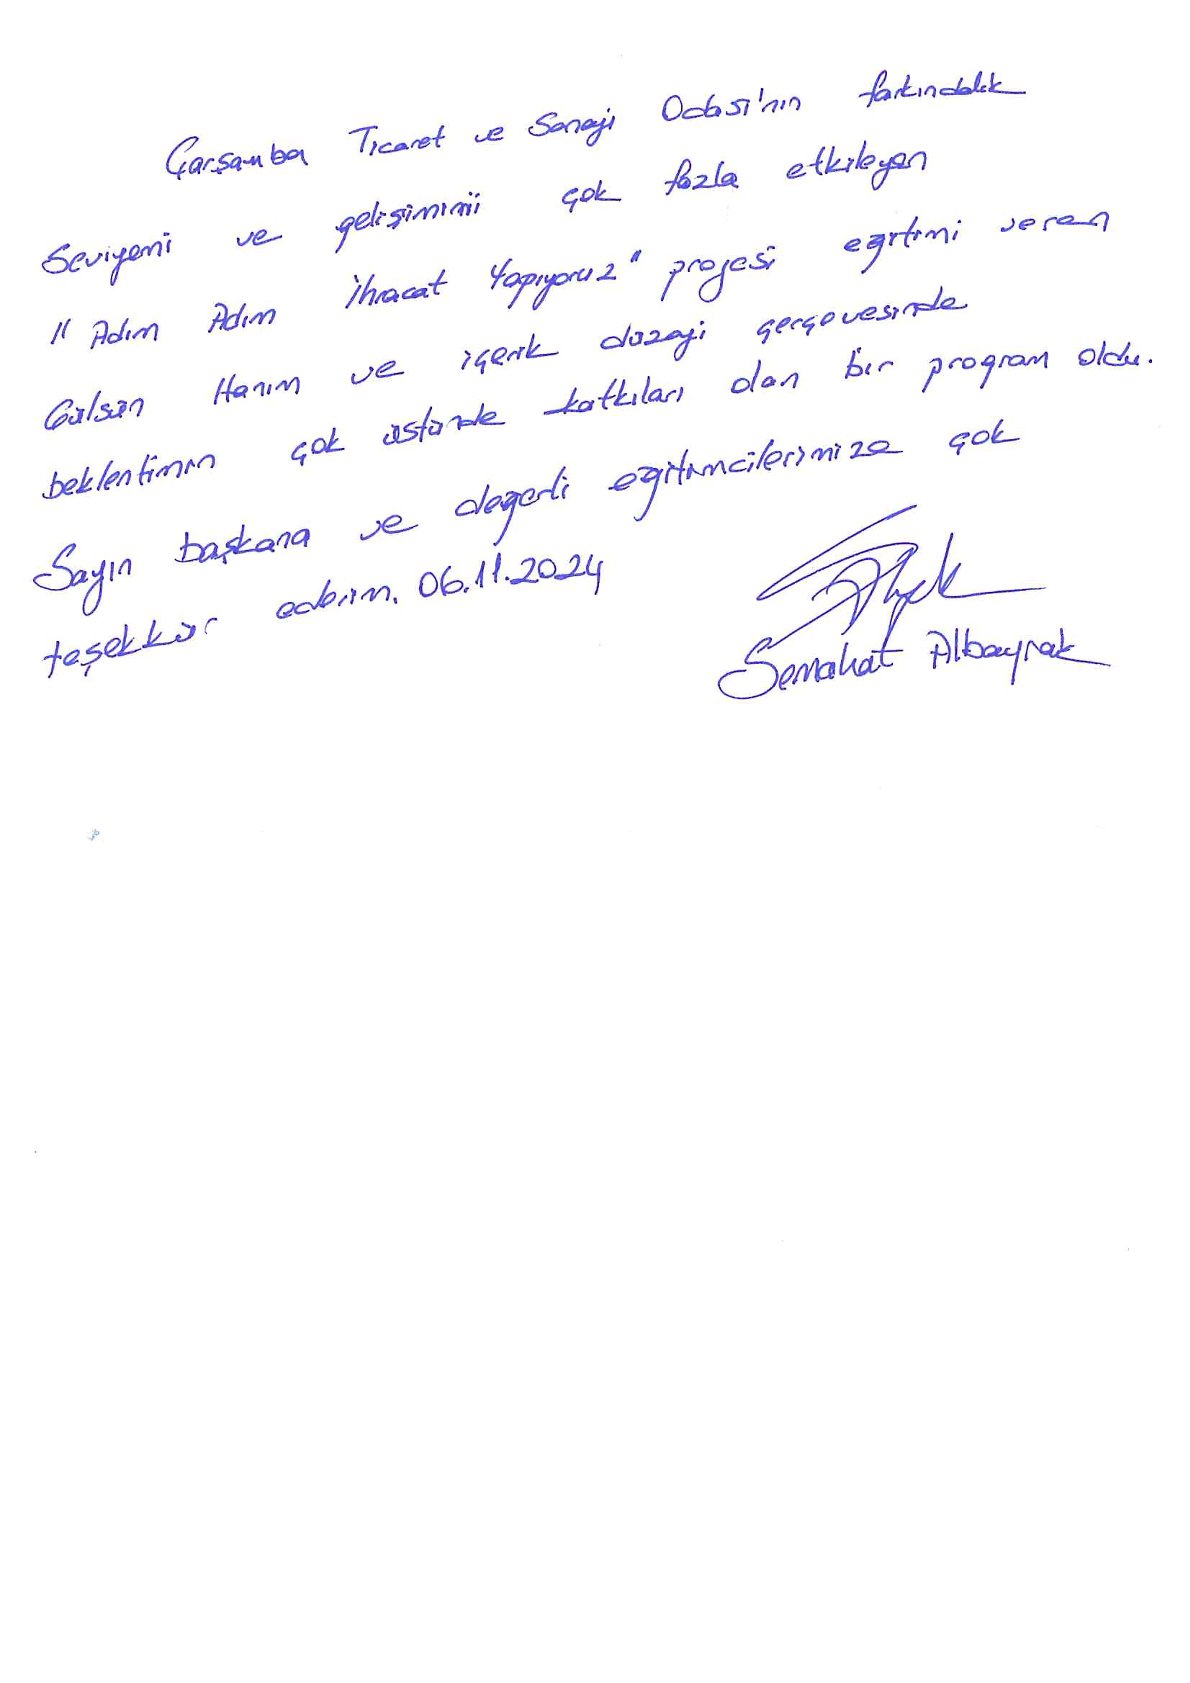 Çarşamba Ticaret ve Sanayi Odası'nın farkındalık
Seviyemi ve gelişimimi çok fazla etkileyen
"Adım Adım İhracat Yapıyoruz" projesi eğitimi veren
Gülsün Hanım ve içerik düzeyi çerçevesinde
beklentimin çok üstünde katkıları olan bir program oldu.
Sayın başkana ve değerli eğitimcilerimize çok
teşekkür ederim. 06.11.2024
Semahat Albayrak